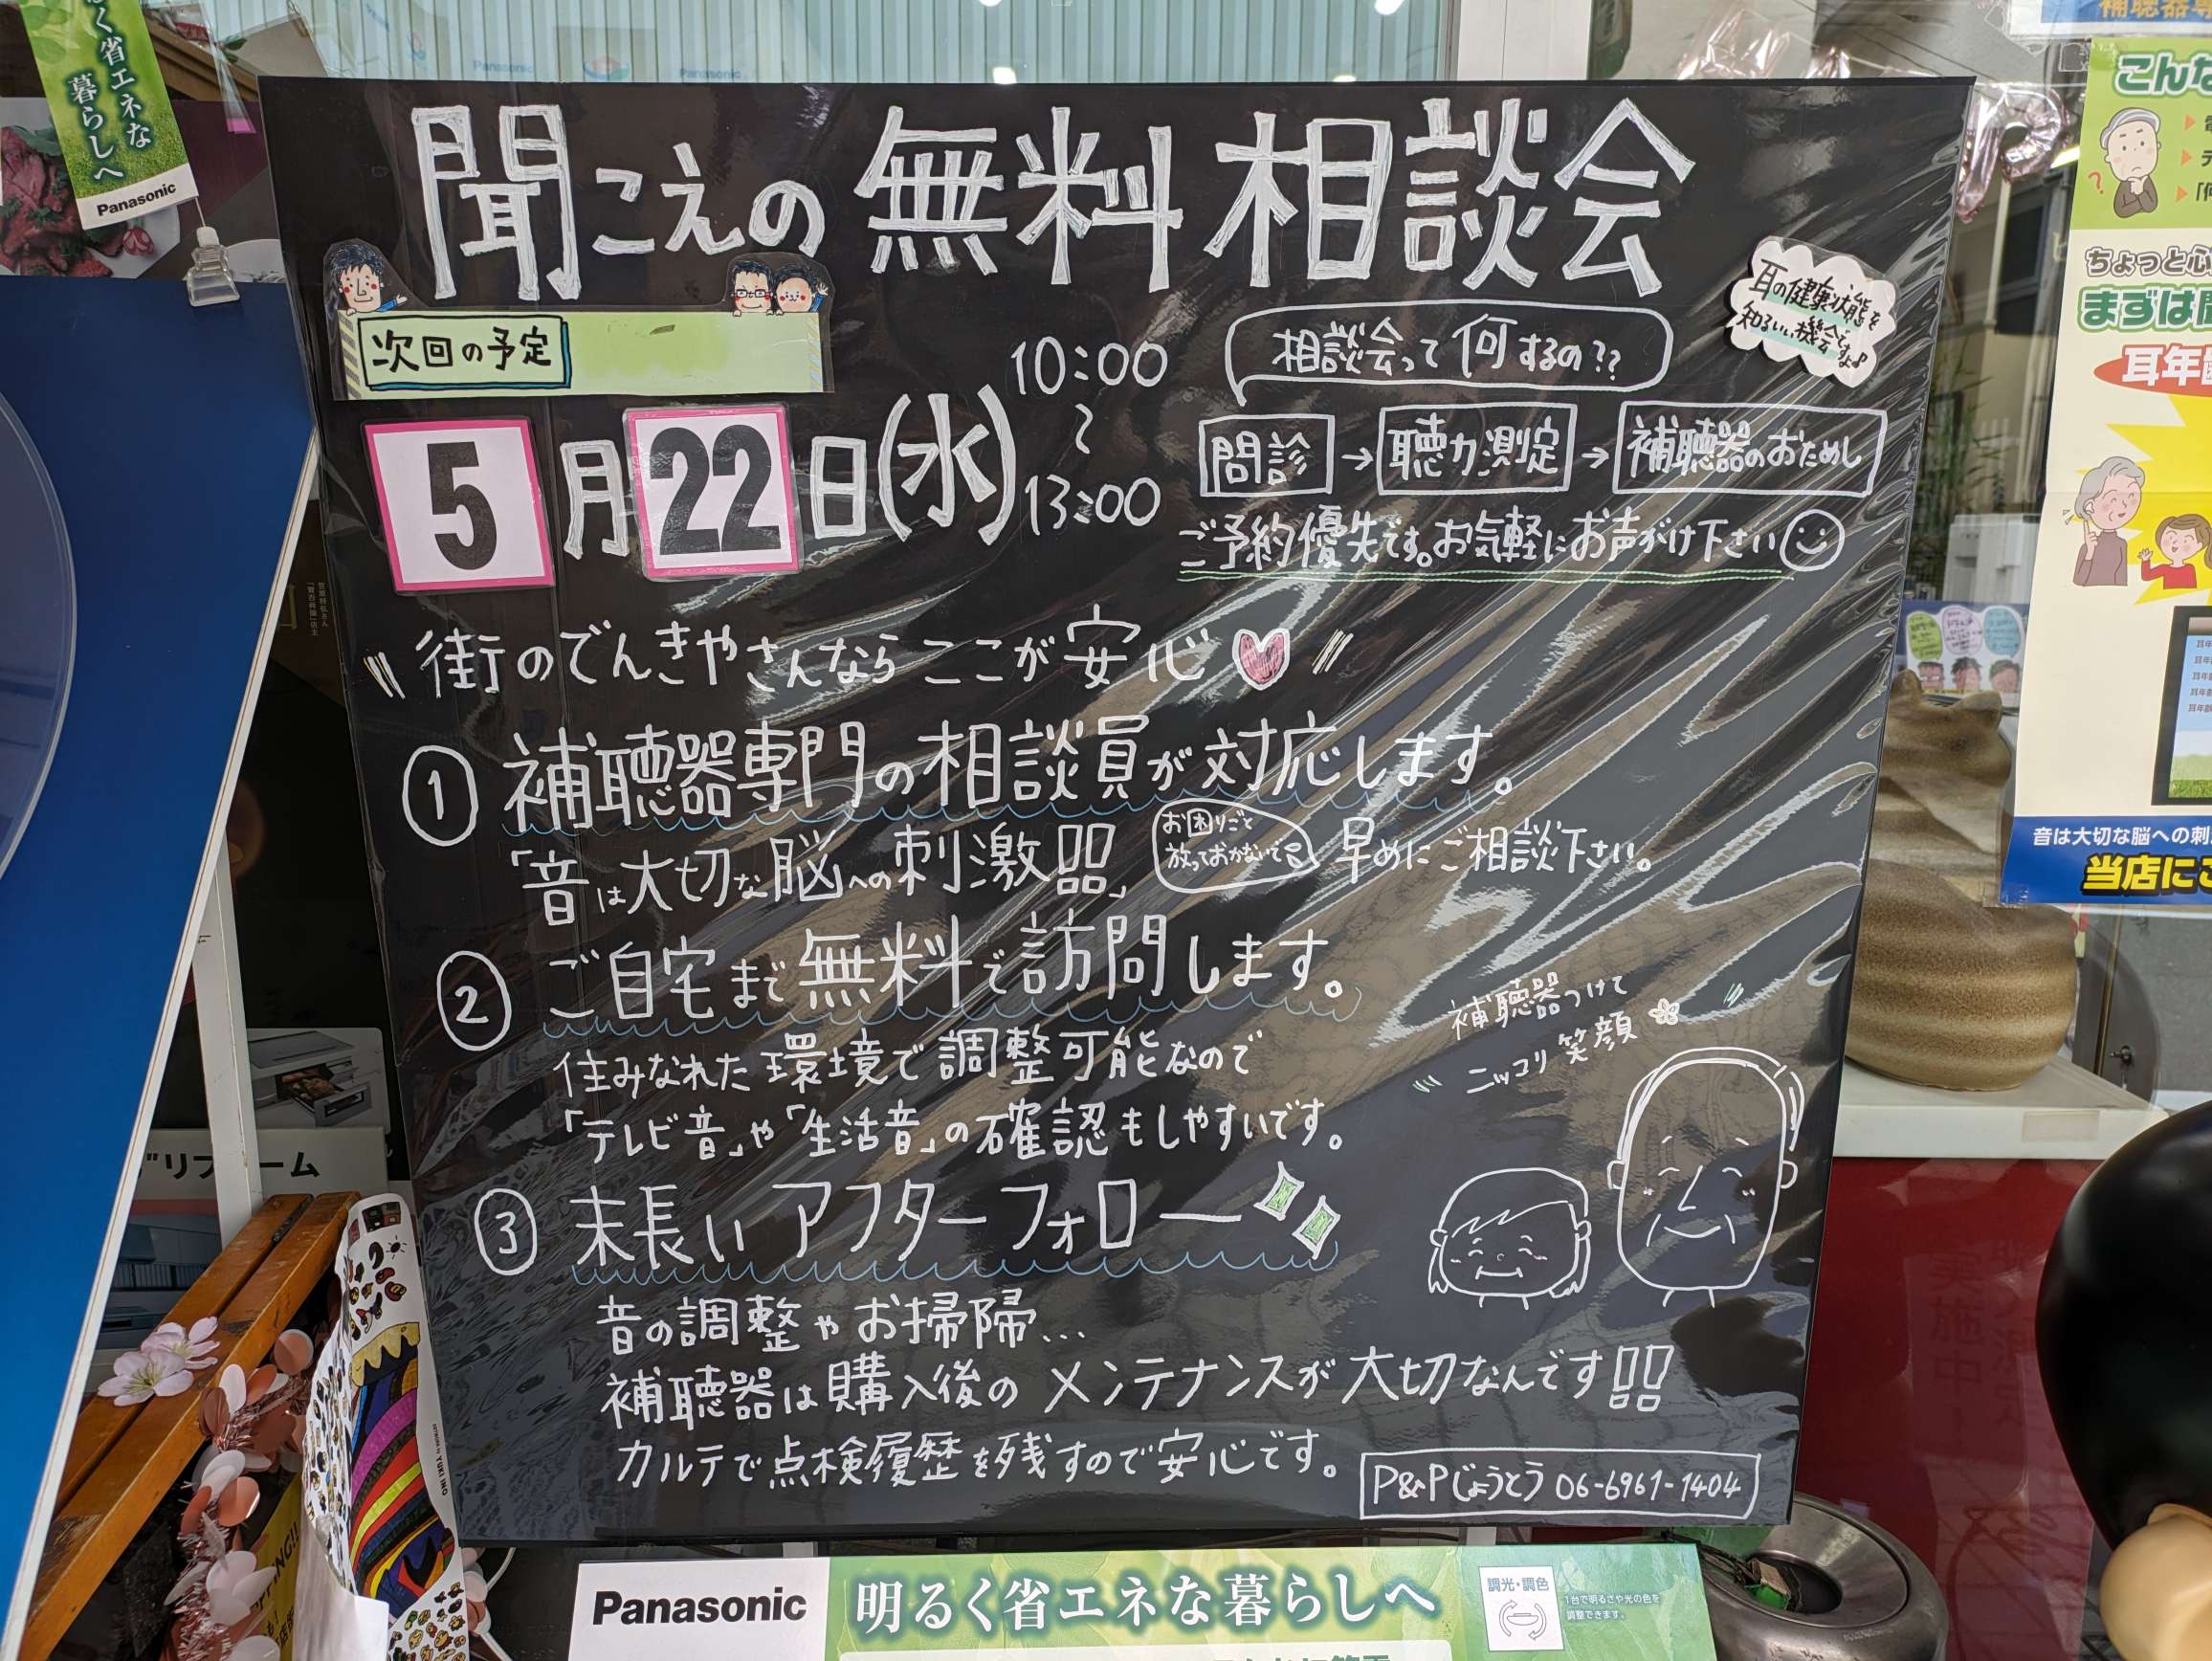 聞こえの無料相談会
次回の予定
5月22日(水)
10:00
〜
13:00
耳の健康状態を
知るいい機会ですよ♪
相談会って何するの??
問診→聴力測定→補聴器のおためし
ご予約優先です。お気軽にお声がけ下さい
街のでんきやさんならここが安心
① 補聴器専門の相談員が対応します。
「音は大切な脳への刺激!!」
お困りごと
放っておかないで
早めにご相談下さい。
② ご自宅まで無料で訪問します。
住みなれた環境で調整可能なので
「テレビ音」や「生活音」の確認もしやすいです。
補聴器つけて
ニッコリ笑顔
③ 末長いアフターフォロー
音の調整やお掃除...
補聴器は購入後のメンテナンスが大切なんです!!
カルテで点検履歴を残すので安心です。
P&Pじょうとう 06-6961-1404
Panasonic
明るく省エネな暮らしへ
調光・調色
1台で明るさや光の色を
調整できます。
く省エネな
暮らしへ
Panasonic
Panasonic
Panasonic
リフォーム
補聴器専
こんな
ちょっと心
まずは
耳年齢
音は大切な脳への刺
当店にご